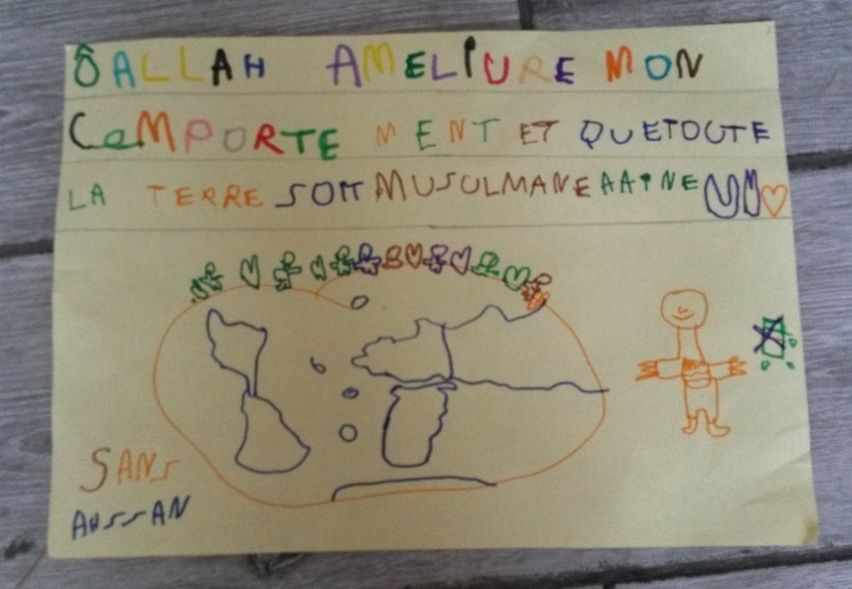 Ô ALLAH AMELIURE MON
COMPORTE MENT ET QUETOUTE
LA TERRE SOIT MUSULMANE AAINE
SANS
AUSSAN